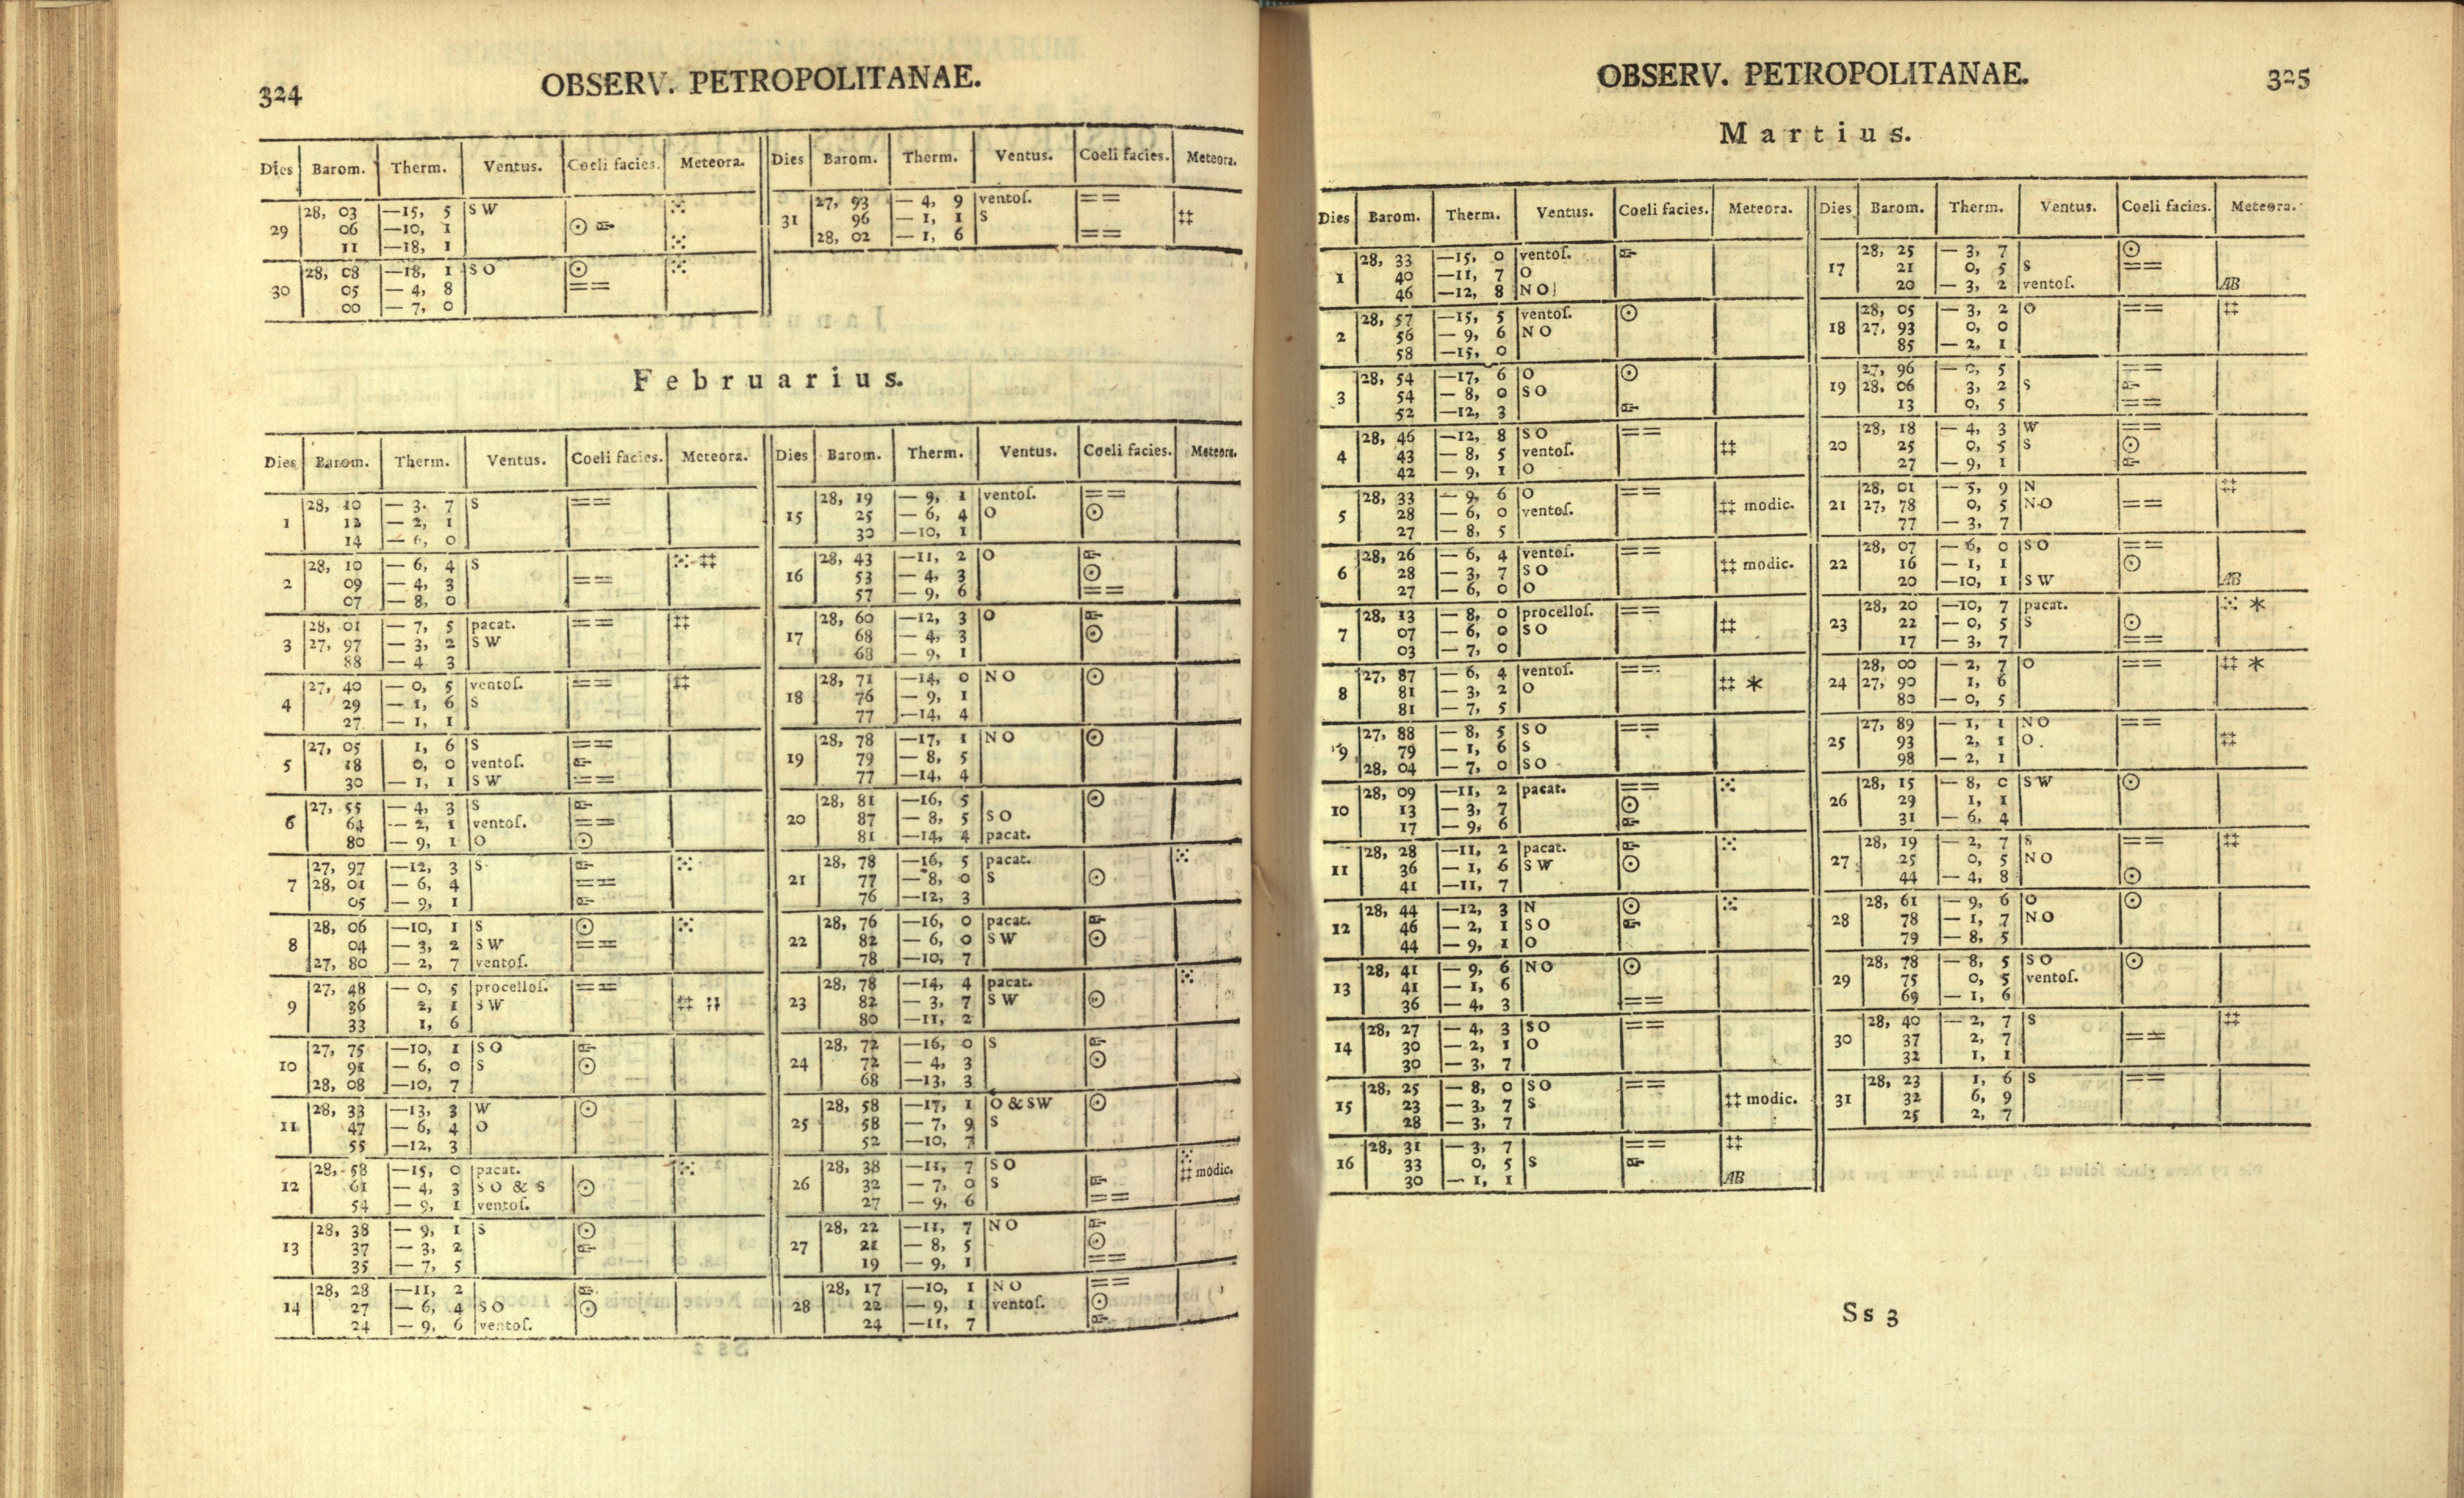 324
OBSERV. PETROPOLITANAE.
Dies Barom. Therm. Ventus. Coeli facies. Meteora.
28, 03 —15, 5 S W
29 06 —10, 1 ☉
11 —18, 1
28, 08 —18, 1 S O ☉
30 05 — 4, 8 ==
00 — 7, 0
Dies Barom. Therm. Ventus. Coeli facies. Meteora.
27, 93 — 4, 9 ventoſ. ==
31 96 — 1, 1 S ‡‡
28, 02 — 1, 6 ==
Februarius.
Dies Barom. Therm. Ventus. Coeli facies. Meteora.
28, 10 — 3. 7 S ==
1 12 — 2, 1
14 — 6, 0
28, 10 — 6, 4 S ‡‡
2 09 — 4, 3 ==
07 — 8, 0
28, 01 — 7, 5 pacat. == ‡‡
3 27, 97 — 3, 2 S W
88 — 4 3
27, 40 — 0, 5 ventoſ. == ‡‡
4 29 — 1, 6 S
27 — 1, 1
27, 05 1, 6 S ==
5 18 0, 0 ventoſ.
30 — 1, 1 S W ==
27, 55 — 4, 3 S
6 64 — 2, 1 ventoſ. ==
80 — 9, 1 O ☉
27, 97 —12, 3 S
7 28, 01 — 6, 4 ==
05 — 9, 1
28, 06 —10, 1 S ☉
8 04 — 3, 2 S W ==
27, 80 — 2, 7 ventoſ.
27, 48 — 0, 5 procelloſ. ==
9 36 2, 1 S W ‡‡
33 1, 6
27, 75 —10, 1 S O
10 91 — 6, 0 S ☉
28, 08 —10, 7
28, 33 —13, 3 W ☉
11 47 — 6, 4 O
55 —12, 3
28, 58 —15, 0 pacat.
12 61 — 4, 3 S O & S ☉
54 — 9, 1 ventoſ.
28, 38 — 9, 1 S ☉
13 37 — 3, 2
35 — 7, 5
28, 28 —11, 2
14 27 — 6, 4 S O ☉
24 — 9, 6 ventoſ.
Dies Barom. Therm. Ventus. Coeli facies. Meteora.
28, 19 — 9, 1 ventoſ. ==
15 25 — 6, 4 O ☉
30 —10, 1
28, 43 —11, 2 O
16 53 — 4, 3 ☉
57 — 9, 6 ==
28, 60 —12, 3 O
17 68 — 4, 3 ☉
68 — 9, 1
28, 71 —14, 0 N O ☉
18 76 — 9, 1
77 —14, 4
28, 78 —17, 1 N O ☉
19 79 — 8, 5
77 —14, 4
28, 81 —16, 5 ☉
20 87 — 8, 5 S O
81 —14, 4 pacat.
28, 78 —16, 5 pacat.
21 77 — 8, 0 S ☉
76 —12, 3
28, 76 —16, 0 pacat.
22 82 — 6, 0 S W ☉
78 —10, 7
28, 78 —14, 4 pacat.
23 82 — 3, 7 S W ☉
80 —11, 2
28, 72 —16, 0 S
24 72 — 4, 3 ☉
68 —13, 3
28, 58 —17, 1 O & SW ☉
25 58 — 7, 9 S
52 —10, 7
28, 38 —11, 7 S O ‡‡ modic.
26 32 — 7, 0 S
27 — 9, 6 ==
28, 22 —11, 7 N O
27 21 — 8, 5 ☉
19 — 9, 1 ==
28, 17 —10, 1 N O ==
28 22 — 9, 1 ventoſ. ☉
24 —11, 7
325
OBSERV. PETROPOLITANAE.
Martius.
Dies Barom. Therm. Ventus. Coeli facies. Meteora.
28, 33 —15, 0 ventoſ.
1 40 —11, 7 O
46 —12, 8 N O
28, 57 —15, 5 ventoſ. ☉
2 56 — 9, 6 N O
58 —15, 0
28, 54 —17, 6 O ☉
3 54 — 8, 0 S O
52 —12, 3
28, 46 —12, 8 S O ==
4 43 — 8, 5 ventoſ. ‡‡
42 — 9, 1 O
28, 33 — 9, 6 O ==
5 28 — 6, 0 ventoſ. ‡‡ modic.
27 — 8, 5
28, 26 — 6, 4 ventoſ. ==
6 28 — 3, 7 S O ‡‡ modic.
27 — 6, 0 O
28, 13 — 8, 0 procelloſ. ==
7 07 — 6, 0 S O ‡‡
03 — 7, 0
27, 87 — 6, 4 ventoſ. ==
8 81 — 3, 2 O ‡‡ *
81 — 7, 5
27, 88 — 8, 5 S O ==
9 79 — 1, 6 S
28, 04 — 7, 0 S O
28, 09 —11, 2 pacat. ==
10 13 — 3, 7 ☉
17 — 9, 6
28, 28 —11, 2 pacat.
11 36 — 1, 6 S W ☉
41 —11, 7
28, 44 —12, 3 N ☉
12 46 — 2, 1 S O
44 — 9, 1 O
28, 41 — 9, 6 N O ☉
13 41 — 1, 6
36 — 4, 3 ==
28, 27 — 4, 3 S O ==
14 30 — 2, 1 O
30 — 3, 7
28, 25 — 8, 0 S O ==
15 23 — 3, 7 S ‡‡ modic.
28 — 3, 7
28, 31 — 3, 7 == ‡‡
16 33 0, 5 S
30 — 1, 1 AB
Dies Barom. Therm. Ventus. Coeli facies. Meteora.
28, 25 — 3, 7 ☉
17 21 0, 5 S ==
20 — 3, 2 ventoſ. AB
28, 05 — 3, 2 O == ‡‡
18 27, 93 0, 0
85 — 2, 1
27, 96 — 0, 5 ==
19 28, 06 3, 2 S
13 0, 5 ==
28, 18 — 4, 3 W ==
20 25 0, 5 S ☉
27 — 9, 1
28, 01 — 5, 9 N ‡‡
21 27, 78 0, 5 N O ==
77 — 3, 7
28, 07 — 6, 0 S O ==
22 16 — 1, 1 ☉
20 —10, 1 S W AB
28, 20 —10, 7 pacat. *
23 22 — 0, 5 S ☉
17 — 3, 7 ==
28, 00 — 2, 7 O == ‡‡ *
24 27, 90 1, 6
80 — 0, 5
27, 89 — 1, 1 N O ==
25 93 2, 1 O ‡‡
98 — 2, 1
28, 15 — 8, 0 S W ☉
26 29 1, 1
31 — 6, 4
28, 19 — 2, 7 S == ‡‡
27 25 0, 5 N O
44 — 4, 8 ☉
28, 61 — 9, 6 O ☉
28 78 — 1, 7 N O
79 — 8, 5
28, 78 — 8, 5 S O ☉
29 75 0, 5 ventoſ.
69 — 1, 6
28, 40 — 2, 7 S ‡‡
30 37 2, 7 ==
32 1, 1
28, 23 1, 6 S ==
31 32 6, 9
25 2, 7
Ss 3